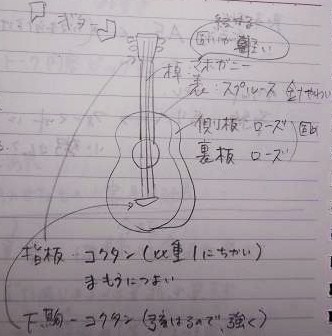 ギター
固いが重い
棹 マホガニー
表：スプルース 針やわい
側板 ローズ 固
裏板 ローズ
指板－コクタン（比重1にちかい）
まもうにつよい
下駒－コクタン（弦はるので、強く）